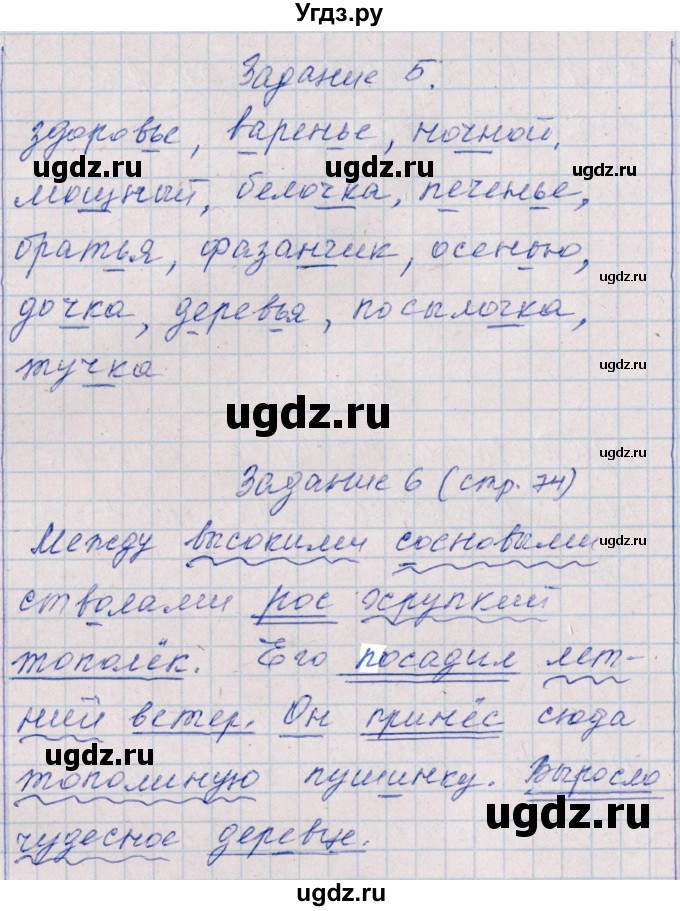 Угдз.ру
Задание 5.
здоровье, варенье, ночной,
ugdz.ru ugdz.ru
мощный, белочка, печенье,
ugdz.ru
братья, фазанчик, осенью,
ugdz.ru
дочка, деревья, посылочка,
тучка
ugdz.ru
ugdz.ru
ugdz.ru
Задание 6 (стр. 74)
Между высокими сосновыми
стволами рос хрупкий
ugdz.ru
тополёк. Его посадил лет-
ний ветер. Он принёс сюда
тополиную пушинку. Выросло
ugdz.ru ugdz.ru
чудесное деревце.
ugdz.ru